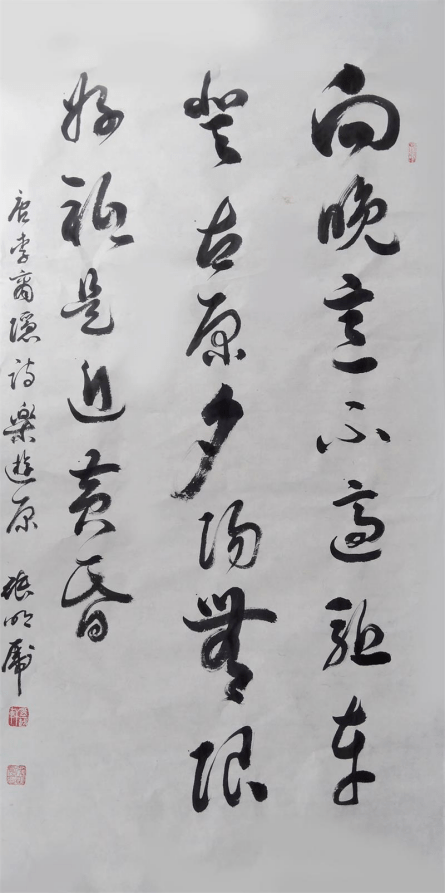 向晚意不適驅車
登古原夕陽無限
好祗是近黃昏
唐李商隱詩樂遊原 張明虎